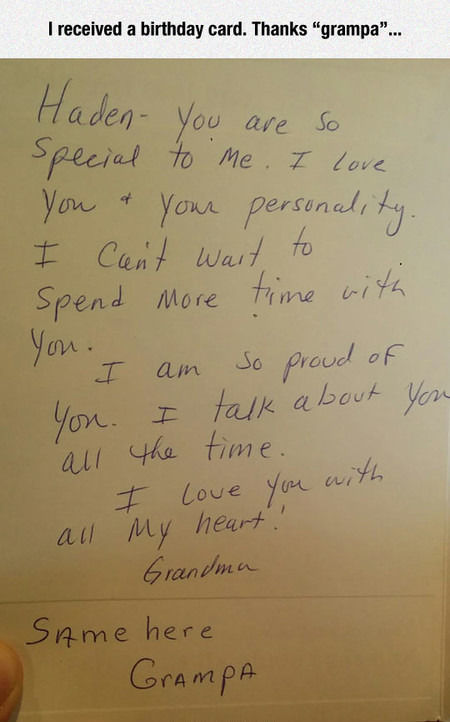 I received a birthday card. Thanks “grampa”...
Haden- You are so
Special to Me. I love
You + Your personality.
I Can't wait to
Spend More time with
You.
I am so proud of
You. I talk about You
all the time.
I Love You with
all My heart!
Grandma
SAme here
GrAmpA